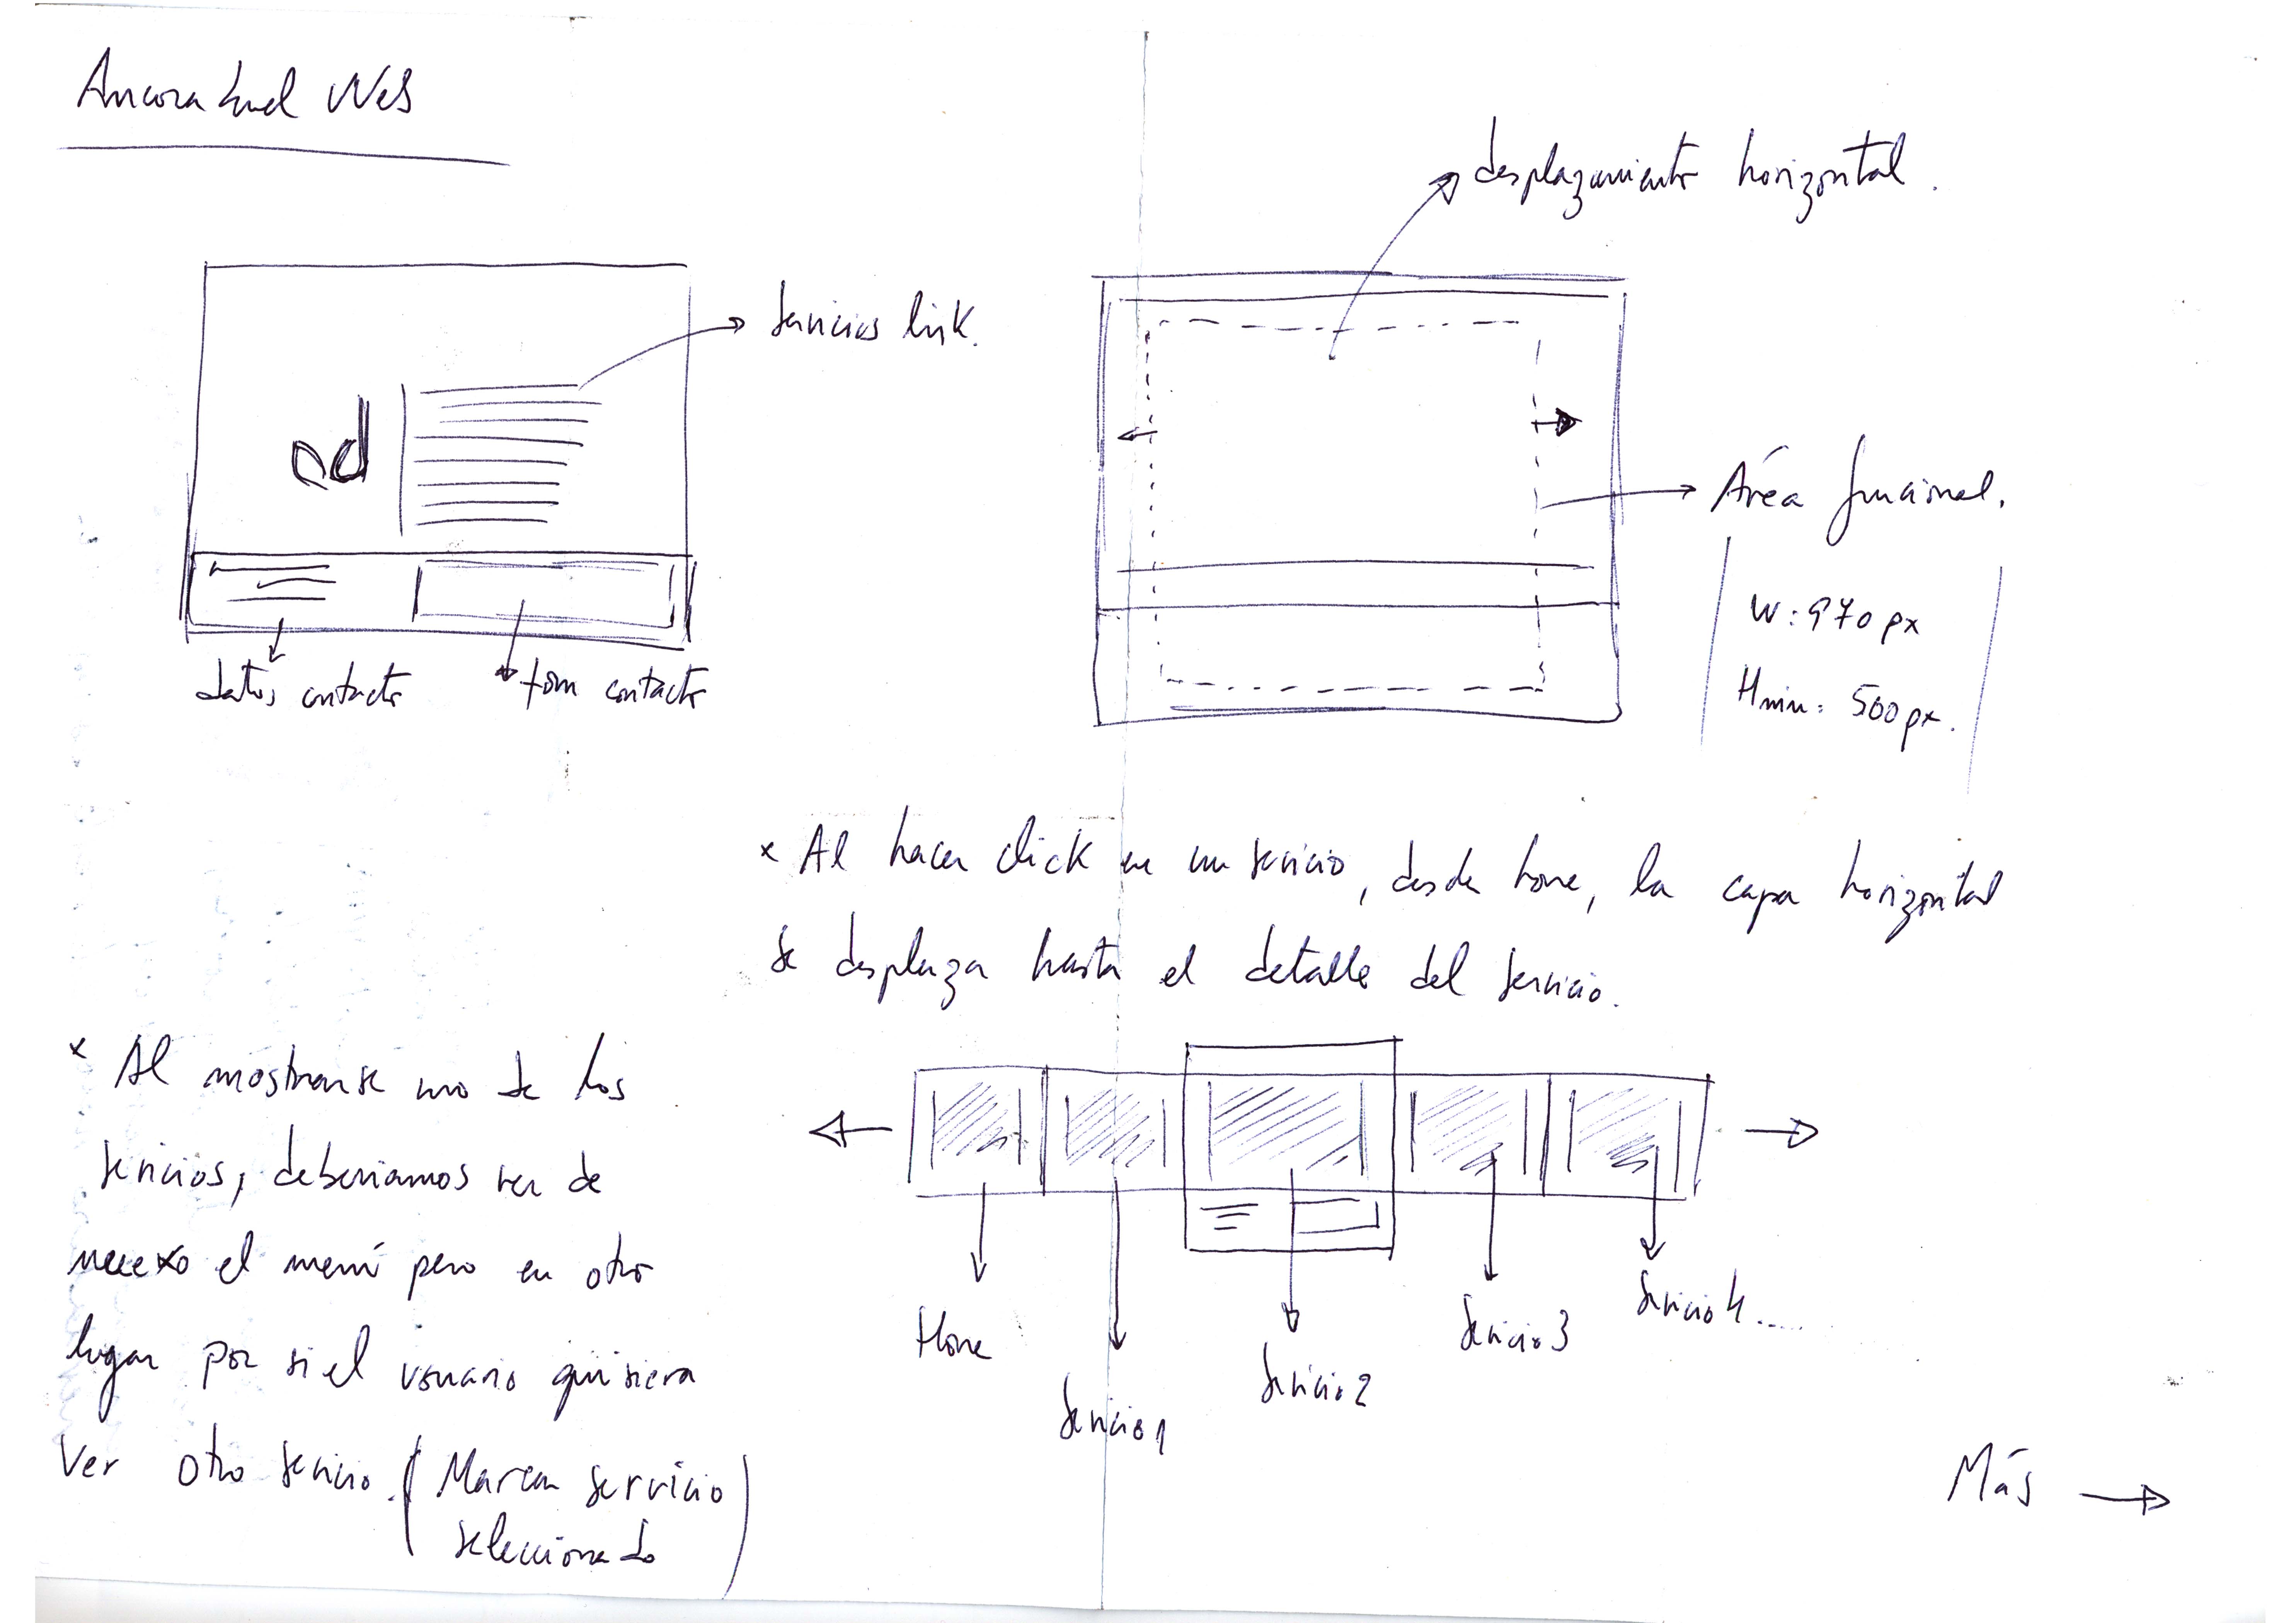 Web
desplazamiento horizontal.
Servicios link.
ad
Área funcional.
W: 970 px
Hmin: 500px.
datos contacto
form contacto
* Al hacer click en un servicio, desde home, la capa horizontal
se desplaza hasta el detalle del servicio.
* Al mostrarse uno de los
servicios, deberiamos ver de
nuevo el menú pero en otro
lugar por si el usuario quisiera
Ver otro servicio. (Marcar servicio
seleccionado)
Home
Servicio 1
Servicio 2
Servicio 3
Servicio 4....
Más